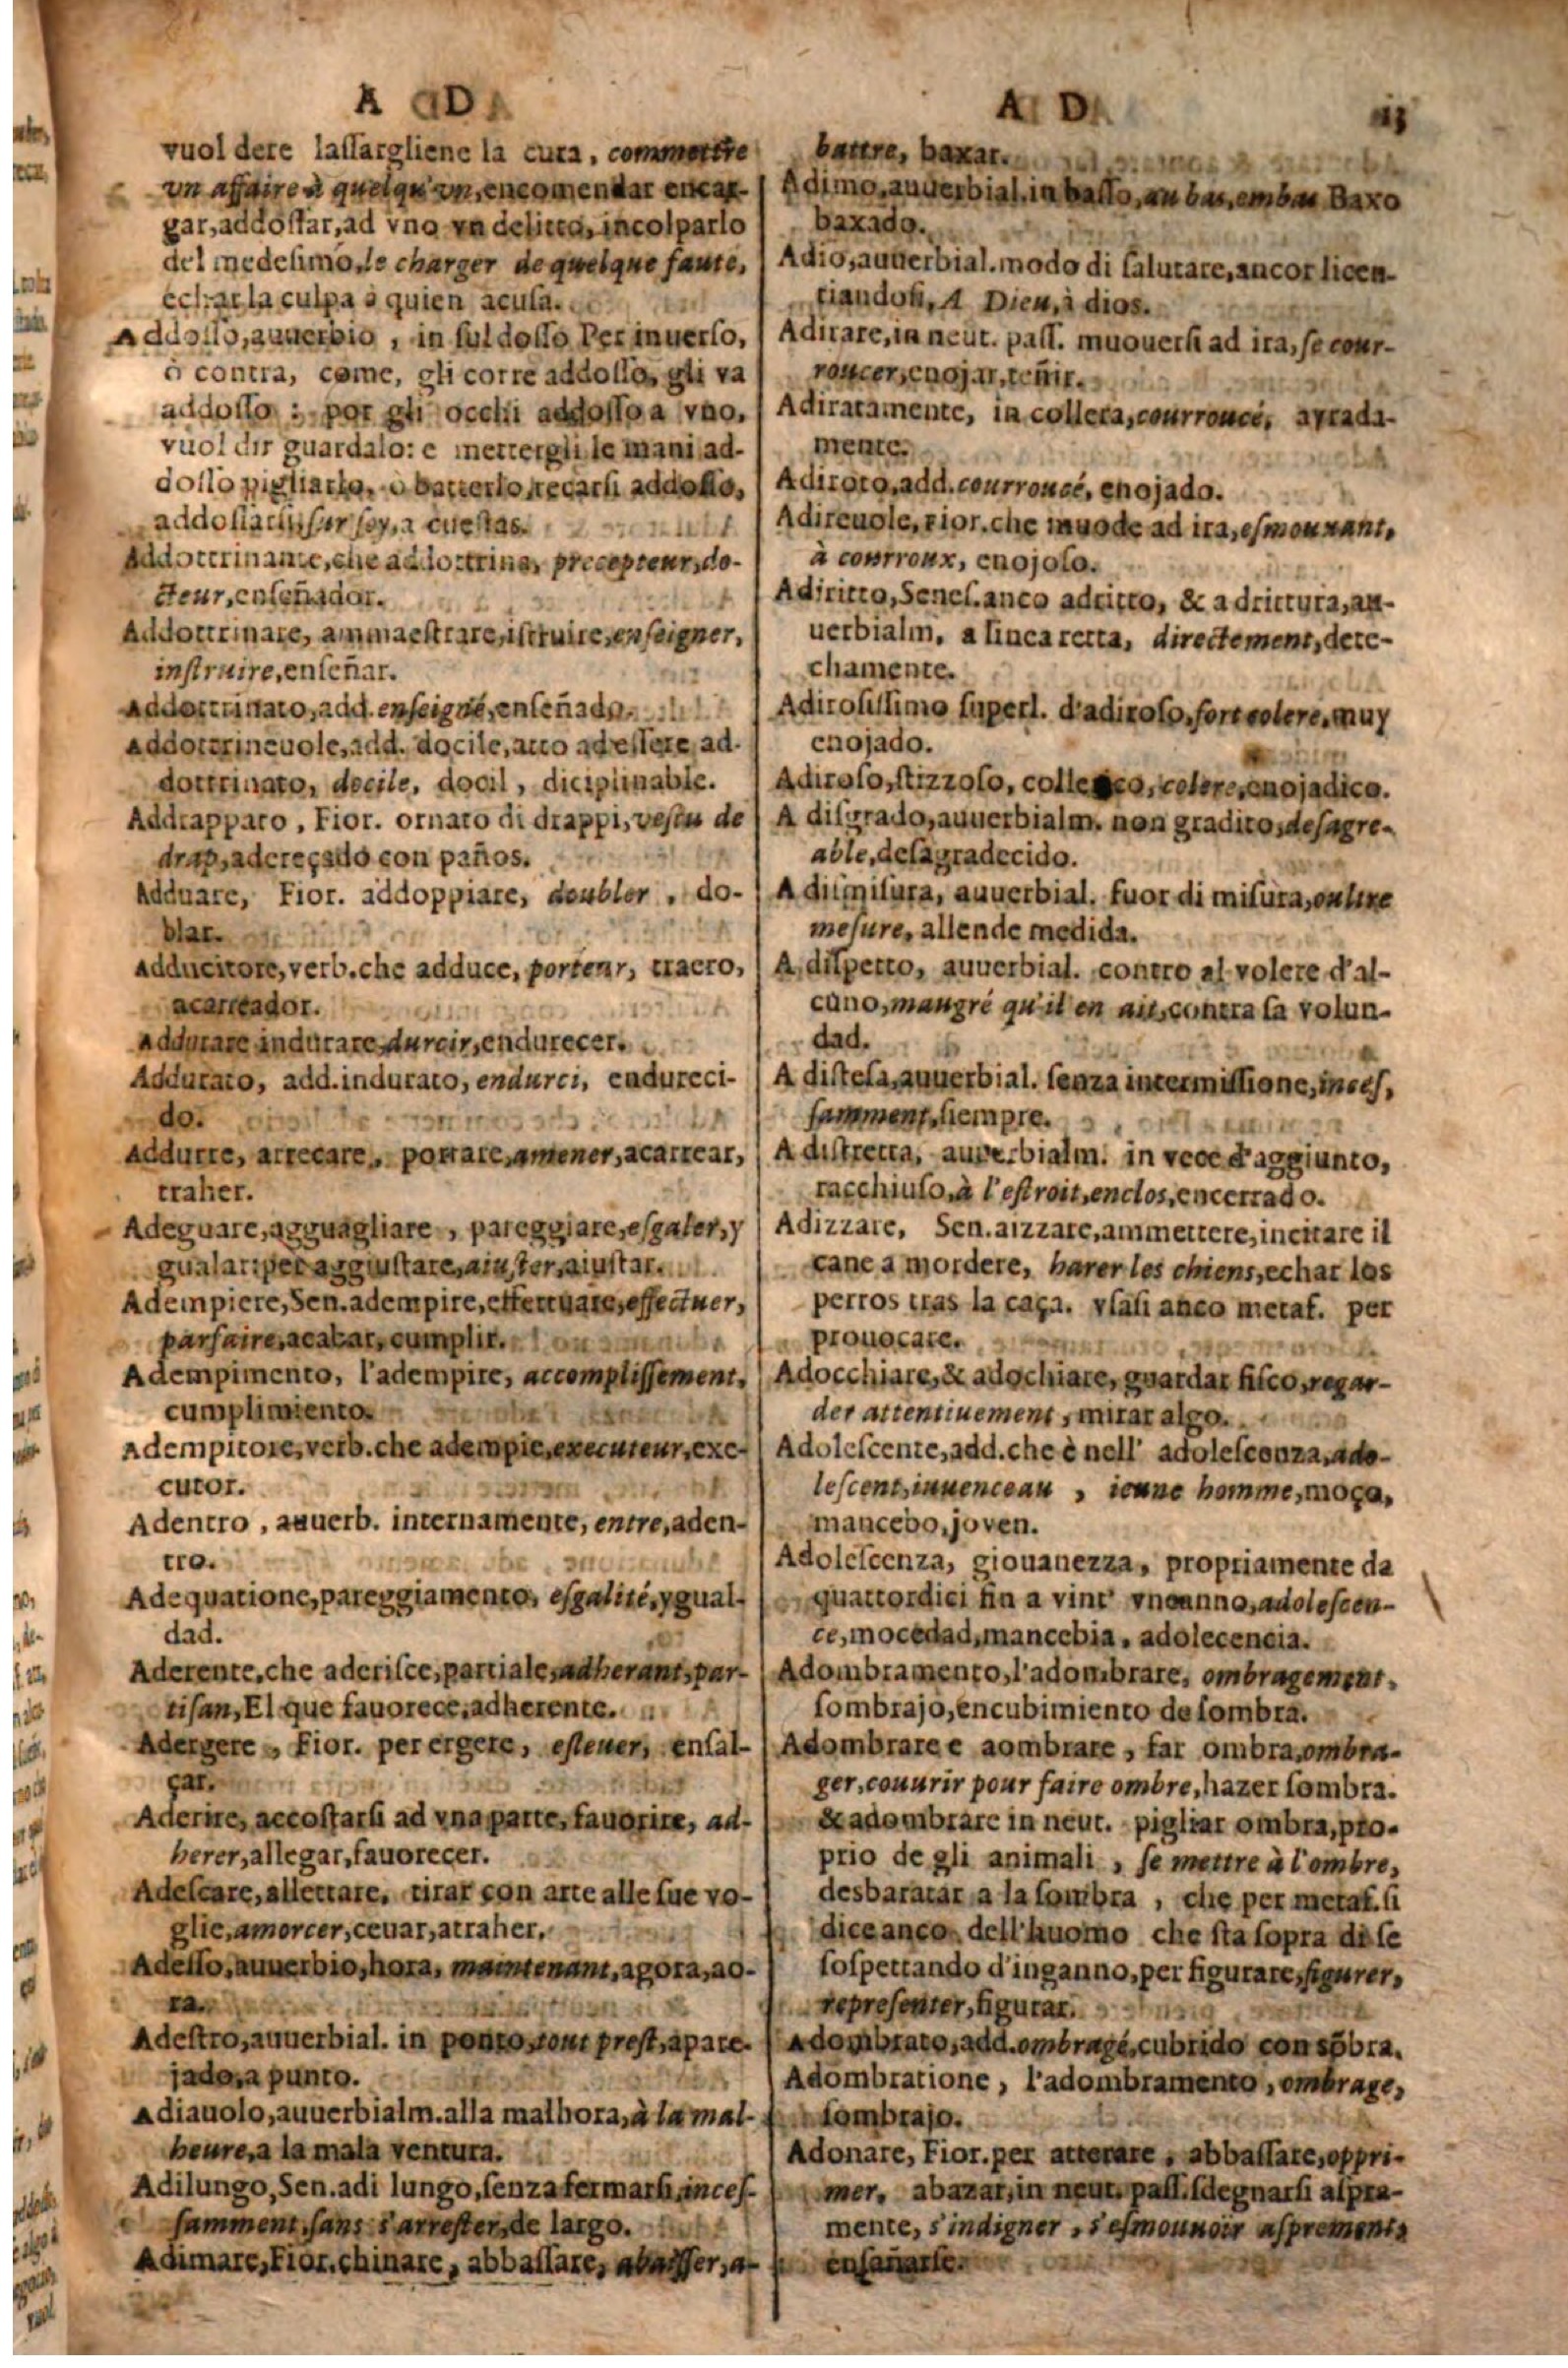 A D
vuol dere laſſargliene la cura, commettre
vn affaire à quelqu'vn, encomendar encar-
gar, addoſſar, ad vno vn delitto, incolparlo
del medeſimo, le charger de quelque faute,
echar la culpa a quien acuſa.
Addoſſo, auuerbio, in ſul doſſo Per inuerſo,
ò contra, come, gli corre addoſſo, gli va
addoſſo: por gli occhi addoſſo a vno,
vuol dir guardalo: e mettergli le mani ad-
doſſo pigliarlo, o batterlo, recarſi addoſſo,
addoſſarſi, ſur ſoy, a cueſtas.
Addottrinante, che addottrina, precepteur, do-
cteur, enſeñador.
Addottrinare, ammaeſtrare, iſtruire, enſeigner,
inſtruire, enſeñar.
Addottrinato, add. enſeigné, enſeñado.
Addottrineuole, add. docile, atto ad eſſere ad-
dottrinato, docile, docil, diciplinable.
Addrappato, Fior. ornato di drappi, veſtu de
drap, adereçado con paños.
Adduare, Fior. addoppiare, doubler, do-
blar.
Adducitore, verb. che adduce, porteur, traero,
acarreador.
Addurare indurare, durcir, endurecer.
Addurato, add. indurato, endurci, endureci-
do.
Addurre, arrecare, portare, amener, acarrear,
traher.
Adeguare, agguagliare, pareggiare, eſgaler, y
gualar: per aggiuſtare, aiuſter, aiuſtar.
Adempiere, Sen. adempire, effettuare, effectuer,
parfaire, acabar, cumplir.
Adempimento, l'adempire, accompliſſement,
cumplimiento.
Adempitore, verb. che adempie, executeur, exe-
cutor.
Adentro, auuerb. internamente, entre, aden-
tro.
Adequatione, pareggiamento, eſgalité, ygual-
dad.
Aderente, che aderiſce, partiale, adherant, par-
tiſan, El que fauorece, adherente.
Adergere, Fior. per ergere, eſleuer, enſal-
çar.
Aderire, accoſtarſi ad vna parte, fauorire, ad-
herer, allegar, fauorecer.
Adeſcare, allettare, tirar con arte alle ſue vo-
glie, amorcer, ceuar, atraher.
Adeſſo, auuerbio, hora, maintenant, agora, ao-
ra.
Adeſtro, auuerbial. in ponto, tout preſt, apare-
jado, a punto.
Adiauolo, auuerbialm. alla malhora, à la mal-
heure, a la mala ventura.
Adilungo, Sen. adi lungo, ſenza fermarſi, inceſ-
ſamment, ſans s'arreſter, de largo.
Adimare, Fior. chinare, abbaſſare, abaiſſer, a-
A D 13
battre, baxar.
Adimo, auuerbial. in baſſo, au bas, embas Baxo
baxado.
Adio, auuerbial. modo di ſalutare, ancor licen-
tiandoſi, A Dieu, à dios.
Adirare, in neut. paſſ. muouerſi ad ira, ſe cour-
roucer, enojar, reñir.
Adiratamente, in collera, courroucé, ayrada-
mente.
Adiroto, add. courroucé, enojado.
Adireuole, Fior. che muode ad ira, eſmouuant,
à courroux, enojoſo.
Adiritto, Seneſ. anco adritto, & a drittura, au-
uerbialm, a linea retta, directement, dere-
chamente.
Adiroſiſſimo ſuperl. d'adiroſo, fort colere, muy
enojado.
Adiroſo, ſtizzoſo, collerico, colere, enojadico.
A diſgrado, auuerbialm. non gradito, deſagre-
able, deſagradecido.
A diſmiſura, auuerbial. fuor di miſura, oultre
meſure, allende medida.
A diſpetto, auuerbial. contro al volere d'al-
cuno, maugré qu'il en ait, contra ſa volun-
dad.
A diſteſa, auuerbial. ſenza intermiſſione, inceſ,
ſamment, ſiempre.
A diſtretta, auuerbialm. in vece d'aggiunto,
racchiuſo, à l'eſtroit, enclos, encerrado.
Adizzare, Sen. aizzare, ammettere, incitare il
cane a mordere, harer les chiens, echar los
perros tras la caça. vſaſi anco metaf. per
prouocare.
Adocchiare, & adochiare, guardar fiſco, regar-
der attentiuement, mirar algo.
Adoleſcente, add. che è nell' adoleſcenza, ado-
leſcent, iuuenceau, ieune homme, moço,
mancebo, joven.
Adoleſcenza, giouanezza, propriamente da
quattordici fin a vint' vnoanno, adoleſcen-
ce, mocedad, mancebia, adolecencia.
Adombramento, l'adombrare, ombragement,
ſombrajo, encubimiento de ſombra.
Adombrare e aombrare, far ombra, ombra-
ger, couurir pour faire ombre, hazer ſombra.
& adombrare in neut. pigliar ombra, pro-
prio de gli animali, ſe mettre à l'ombre,
desbaratar a la ſombra, che per metaf. ſi
dice anco dell'huomo che ſta ſopra di ſe
ſoſpettando d'inganno, per figurare, figurer,
repreſenter, figurar.
Adombrato, add. ombragé, cubrido con sõbra.
Adombratione, l'adombramento, ombrage,
ſombrajo.
Adonare, Fior. per atterare, abbaſſare, oppri-
mer, abazar, in neut. paſſ. ſdegnarſi aſpra-
mente, s'indigner, s'eſmouuoir aſprement,
enſañarſe.